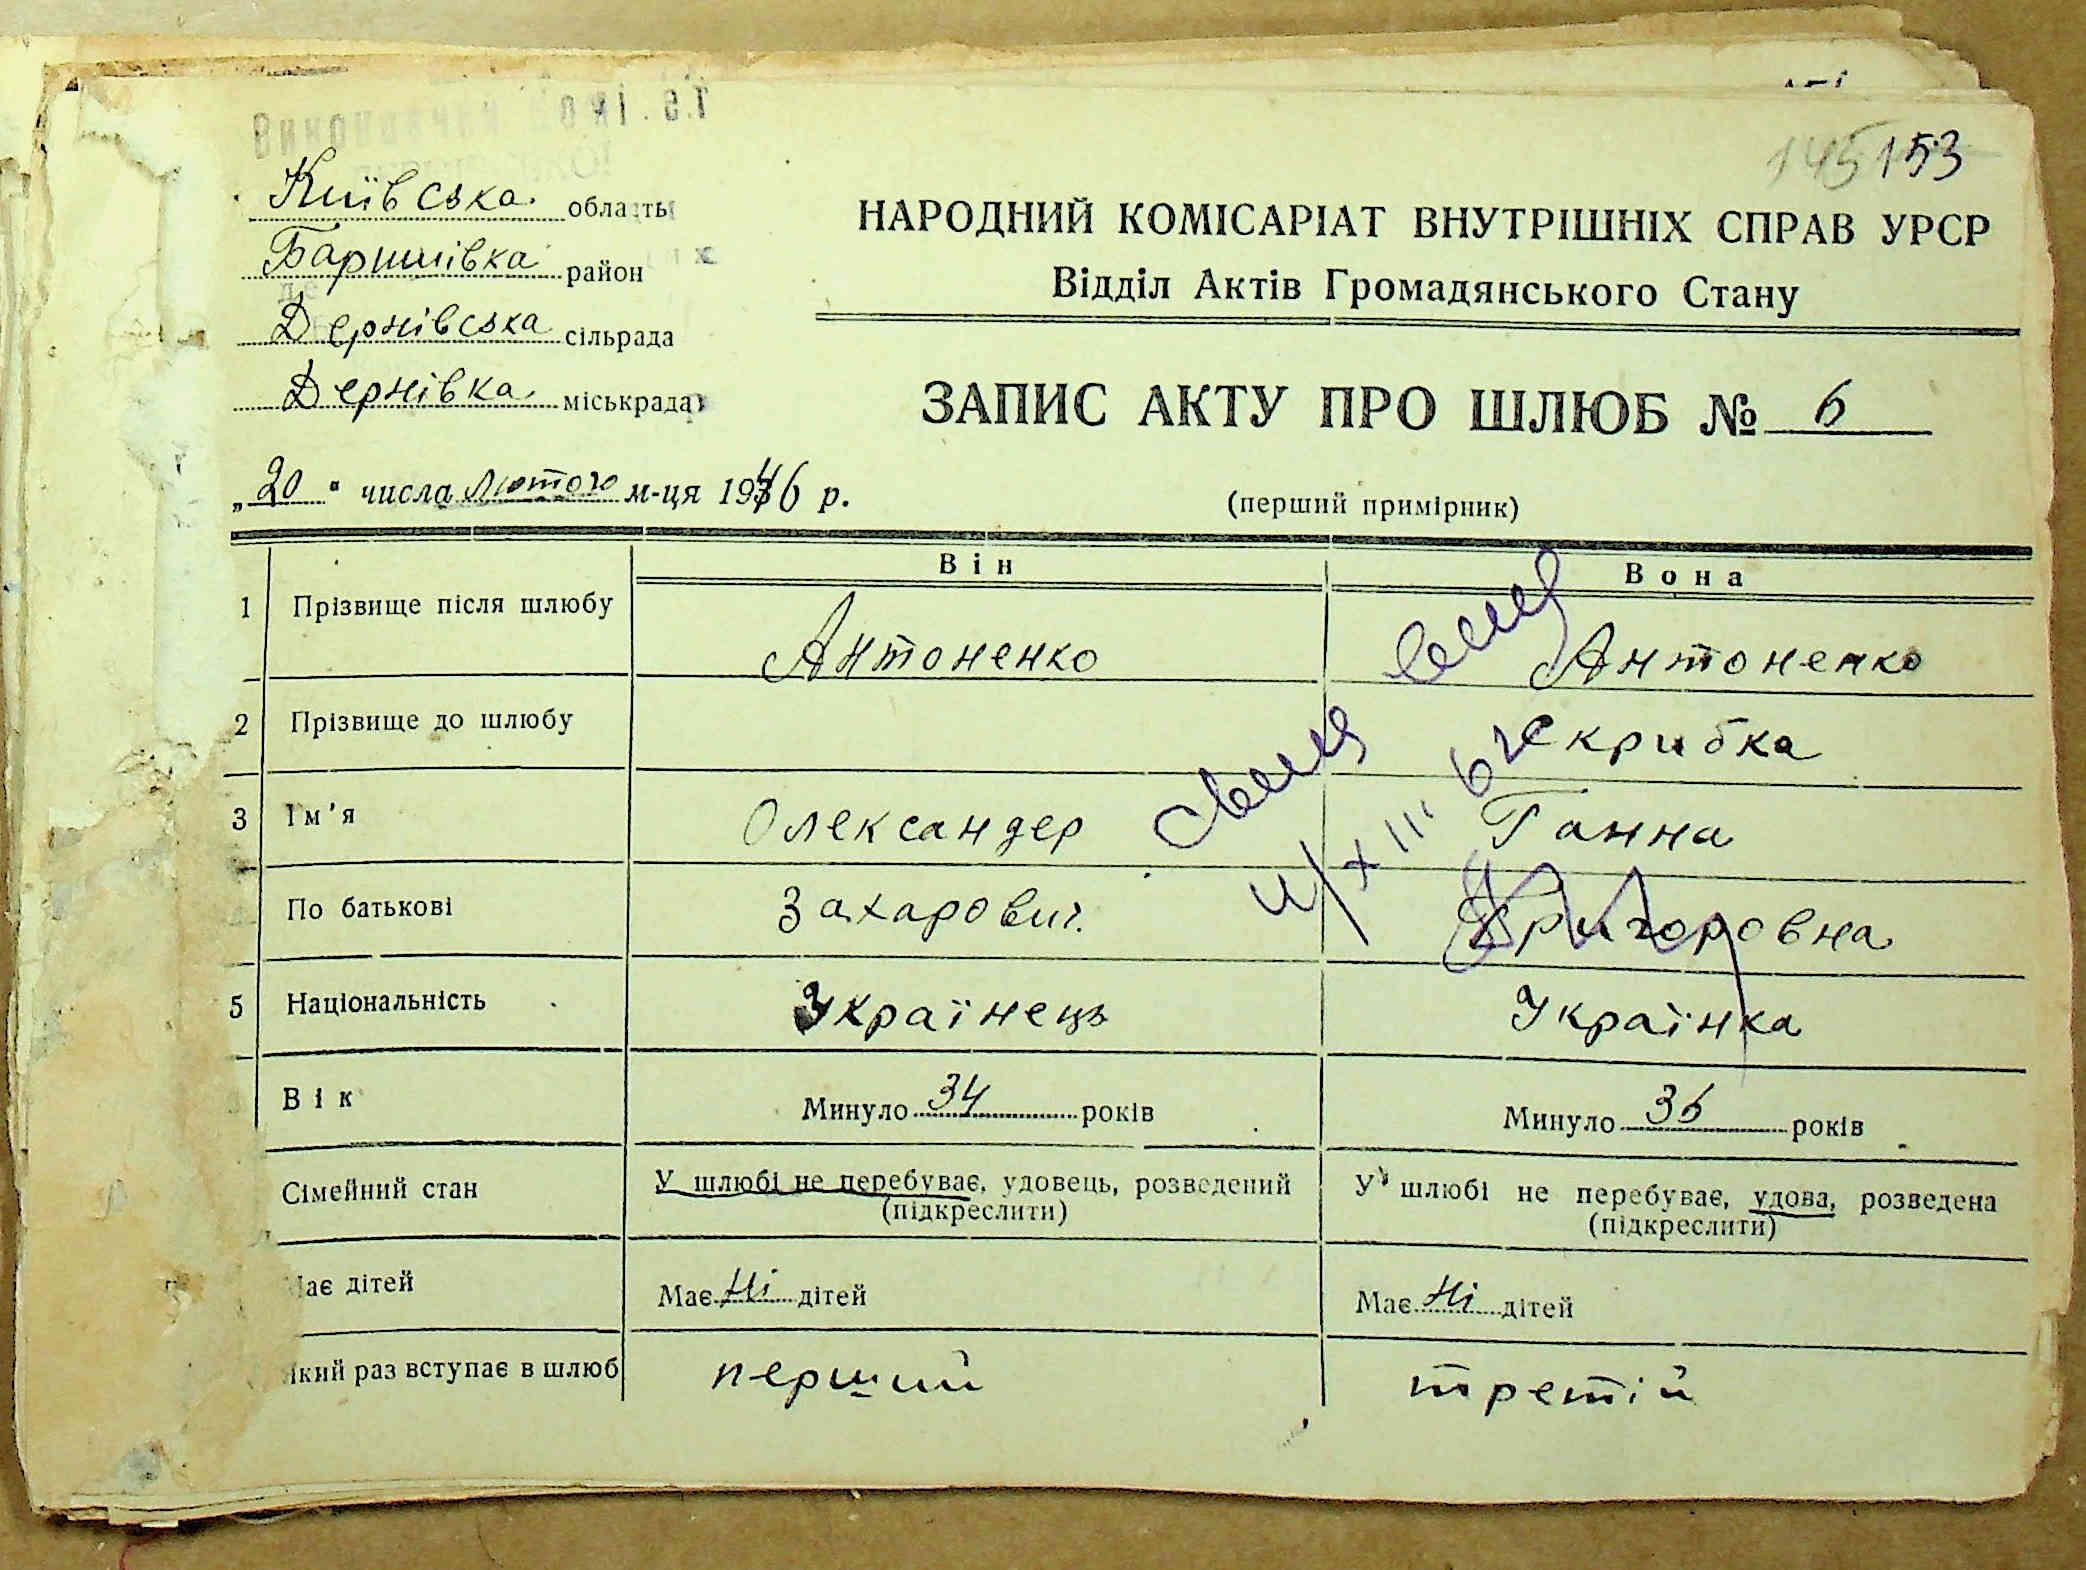 145 153
Київська область
Баришівка район
Дернівська сільрада
Дернівка міськрада
НАРОДНИЙ КОМІСАРІАТ ВНУТРІШНІХ СПРАВ УРСР
Відділ Актів Громадянського Стану
ЗАПИС АКТУ ПРО ШЛЮБ № 6
„20" числа лютого м-ця 1946 р.
(перший примірник)
Він Вона
1 Прізвище після шлюбу Антоненко Антоненко
2 Прізвище до шлюбу Скрибка
3 Ім'я Олександер Ганна
По батькові Захарович Григоровна
5 Національність Українець Українка
Вік Минуло 34 років Минуло 36 років
Сімейний стан У шлюбі не перебуває, удовець, розведений У шлюбі не перебуває, удова, розведена
(підкреслити) (підкреслити)
ає дітей Має Ні дітей Має Ні дітей
який раз вступає в шлюб перший третій